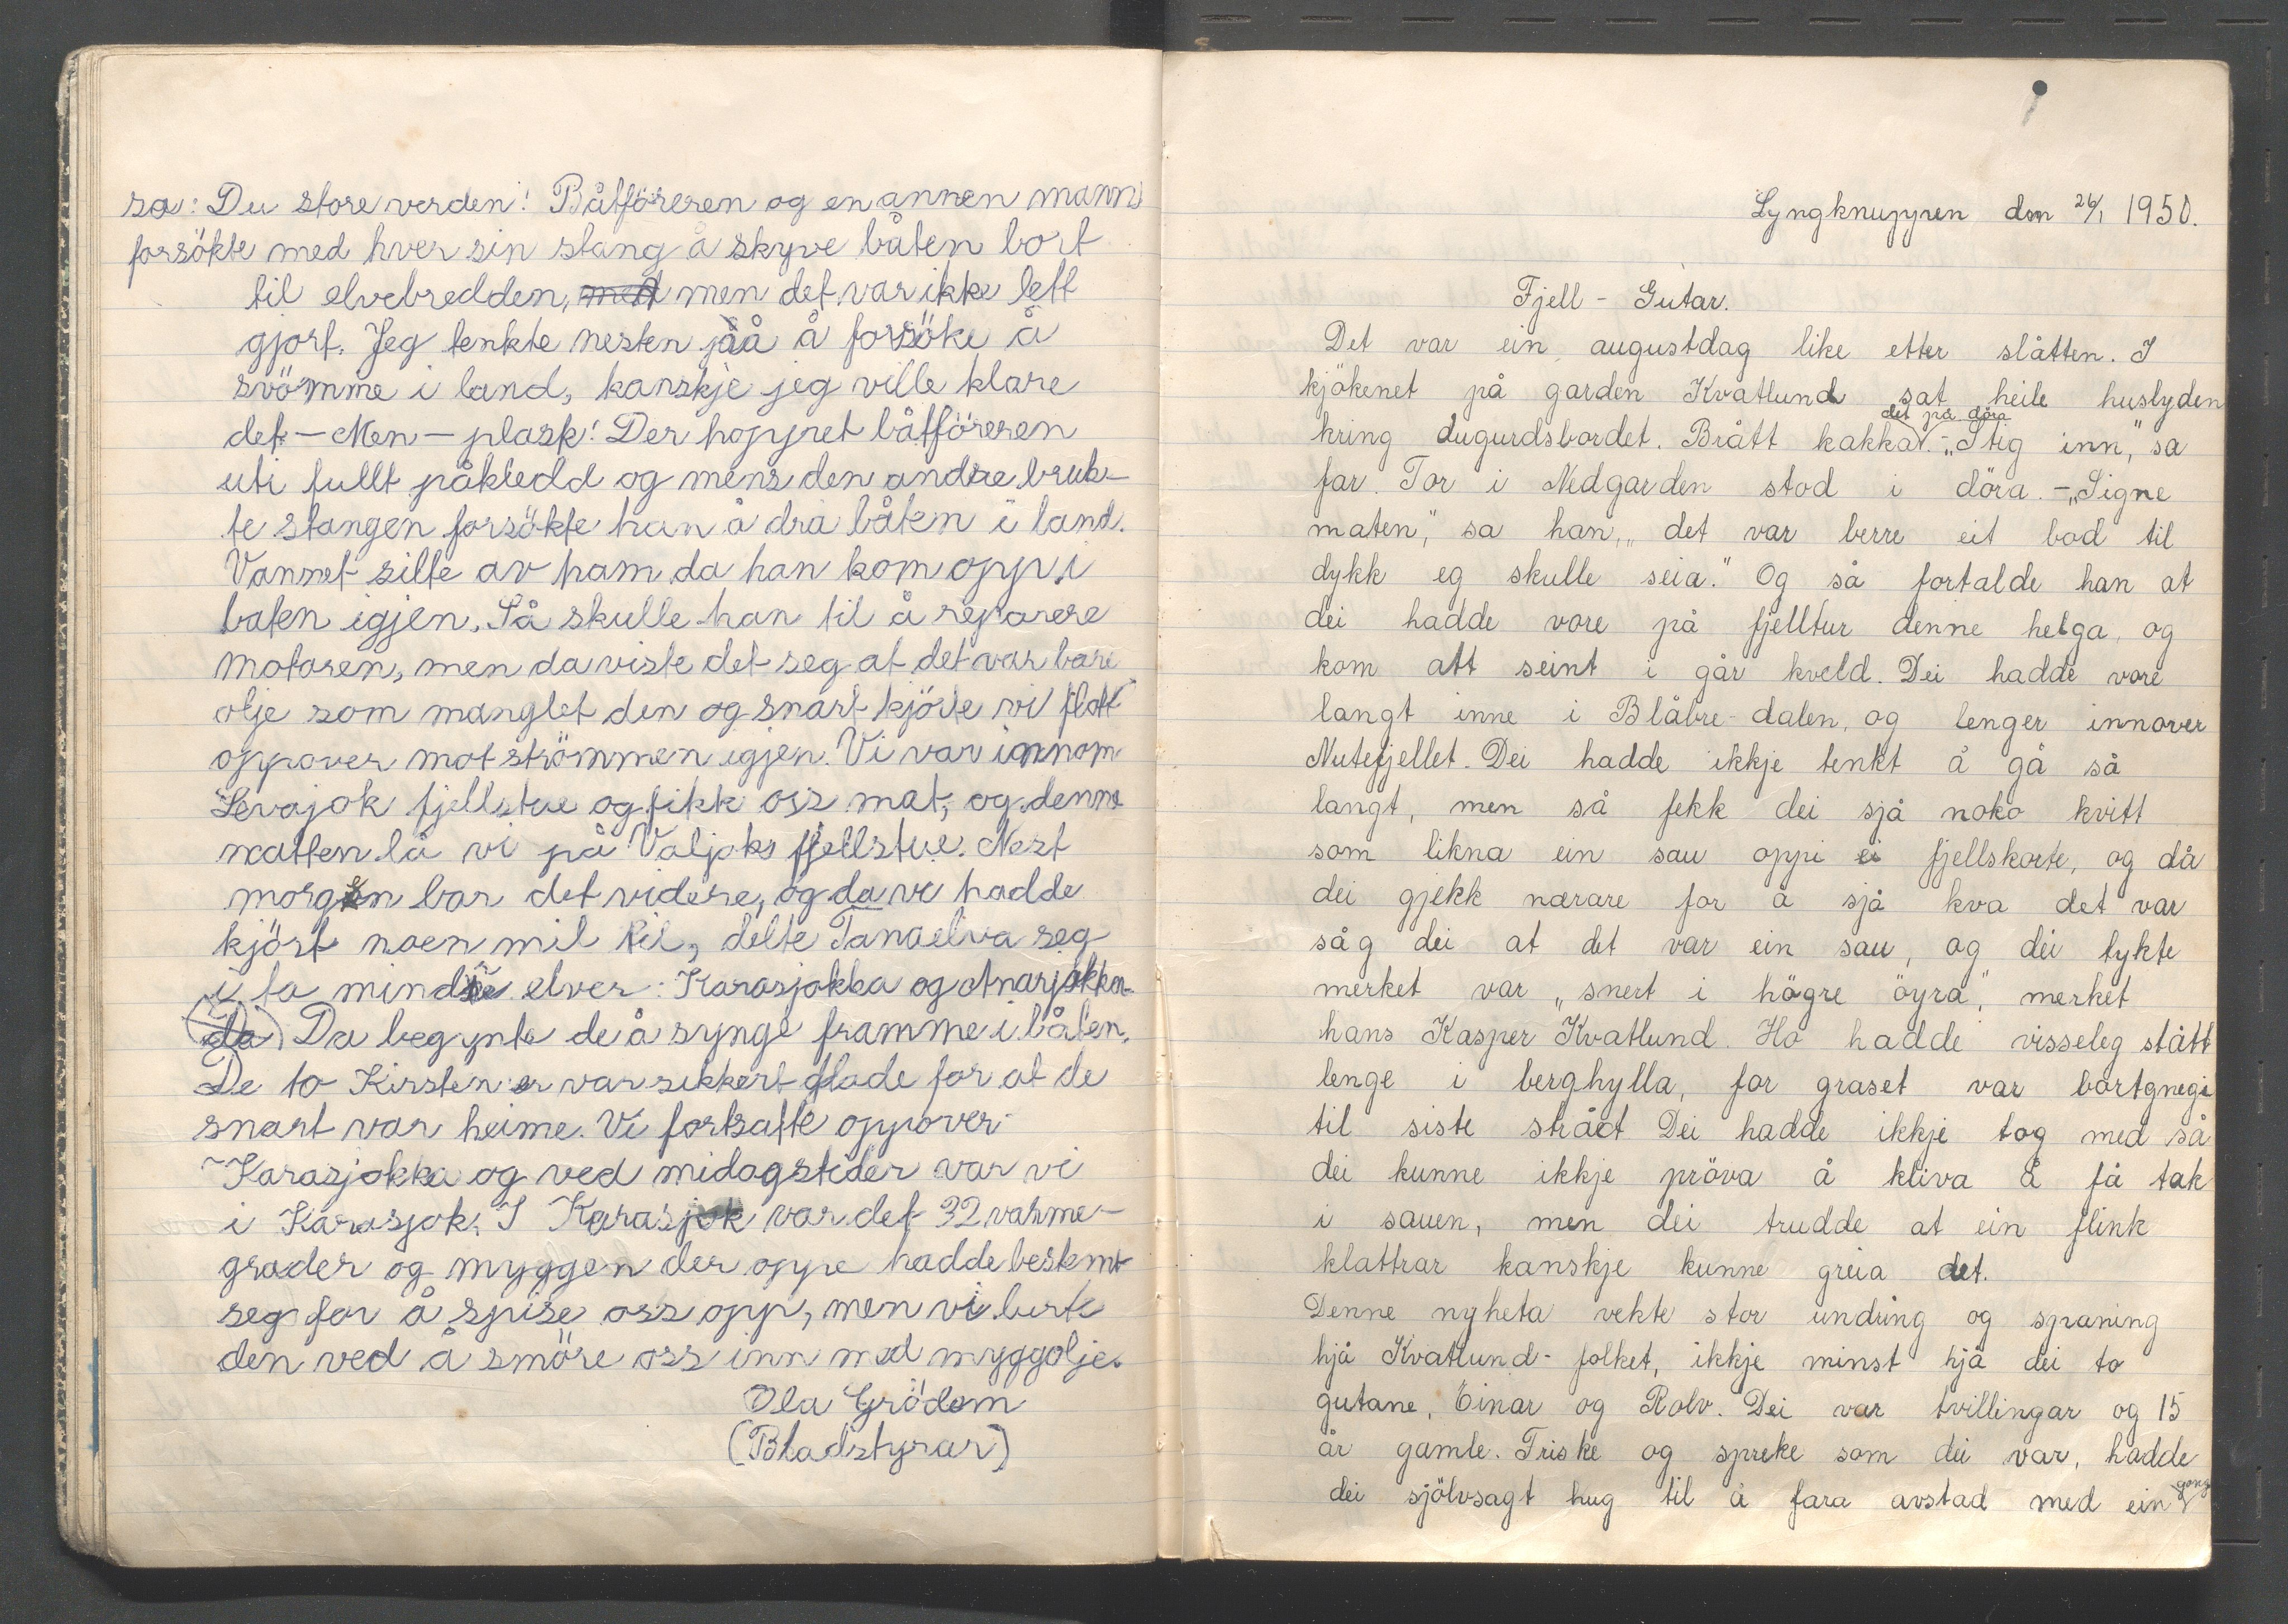 sa: Du store verden! Båtföreren og en annen mann
forsökte med hver sin stang å skyve båten bort
til elvebredden, med men det var ikke lett
gjort. Jeg tenkte nesten på å forsöke å
svömme i land, kanskje jeg ville klare
det - Men - plask! Der hoppet båtföreren
uti fullt påkledd og mens den andre bruk-
te stangen forsökte han å dra båten i land.
Vannet silte av ham da han kom opp i
baten igjen. Så skulle han til å reparere
motoren, men da viste det seg at det var bare
olje som manglet den og snart kjörte vi flott
oppover mot strömmen igjen. Vi var innom
Levajok fjellstue og fikk oss mat, og denne
natten lå vi på Valjoks fjellstue. Nest
morgen bar det videre, og da vi hadde
kjört noen mil til, delte Tanaelva seg
i to mindre elver: Karasjokka og Anarjokka.
da Da begynte de å synge framme i båten.
De to Kirsten er var sikkert glade for at de
snart var heime. Vi fortsatte oppover
Karasjokka og ved midagstider var vi
i Karasjok. I Karasjok var det 32 varme-
grader og myggen der oppe hadde bestemt
seg for å spise oss opp, men vi lurte
den ved å smöre oss inn med myggolje.
Ola Grödem
(Bladstyrar)
Lyngknuppen den 26/1 1950.
Fjell - Gutar.
Det var ein augustdag like etter slåtten. I
kjökenet på garden Kvatlund sat heile huslyden
det på döra
kring dugurdsbordet. Brått kakka. - "Stig inn," sa
far. Tor i Nedgarden stod i döra. - "Signe
maten," sa han, "det var berre eit bod til
dykk eg skulle seia." Og så fortalde han at
dei hadde vore på fjelltur denne helga, og
kom att seint i går kveld. Dei hadde vore
langt inne i Blåbre-dalen, og lenger innover
Nutefjellet. Dei hadde ikkje tenkt å gå så
langt, men så fekk dei sjå noko kvitt
som likna ein sau oppi ei fjellskorte, og då
dei gjekk nærare for å sjå kva det var
såg dei at det var ein sau, og dei tykte
merket var "snert i högre öyra", merket
hans Kasper Kvatlund. Ho hadde visseleg stått
lenge i berghylla, for graset var bortgnegi
til siste strået Dei hadde ikkje tog med så
dei kunne ikkje pröva å kliva å få tak
i sauen, men dei trudde at ein flink
klattrar kanskje kunne greia det.
Denne nyheta vekte stor undring og spaning
hjå Kvatlund-folket, ikkje minst hjå dei to
gutane, Einar og Rolv. Dei var tvillingar og 15
år gamle. Friske og spreke som dei var, hadde
dei sjölvsagt hug til å fara avstad med ein gong